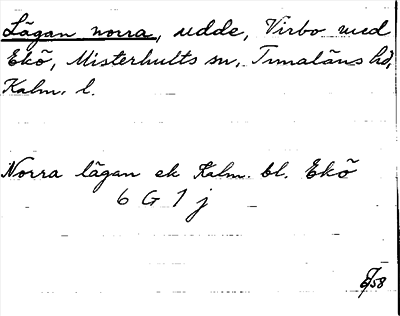 Lågan norra, udde, Virbo med
Ekö, Misterhults sn, Tunaläns hd,
Kalm. l.
Norra lågan ek Kalm. bl. Ekö
6 G 7 j
58